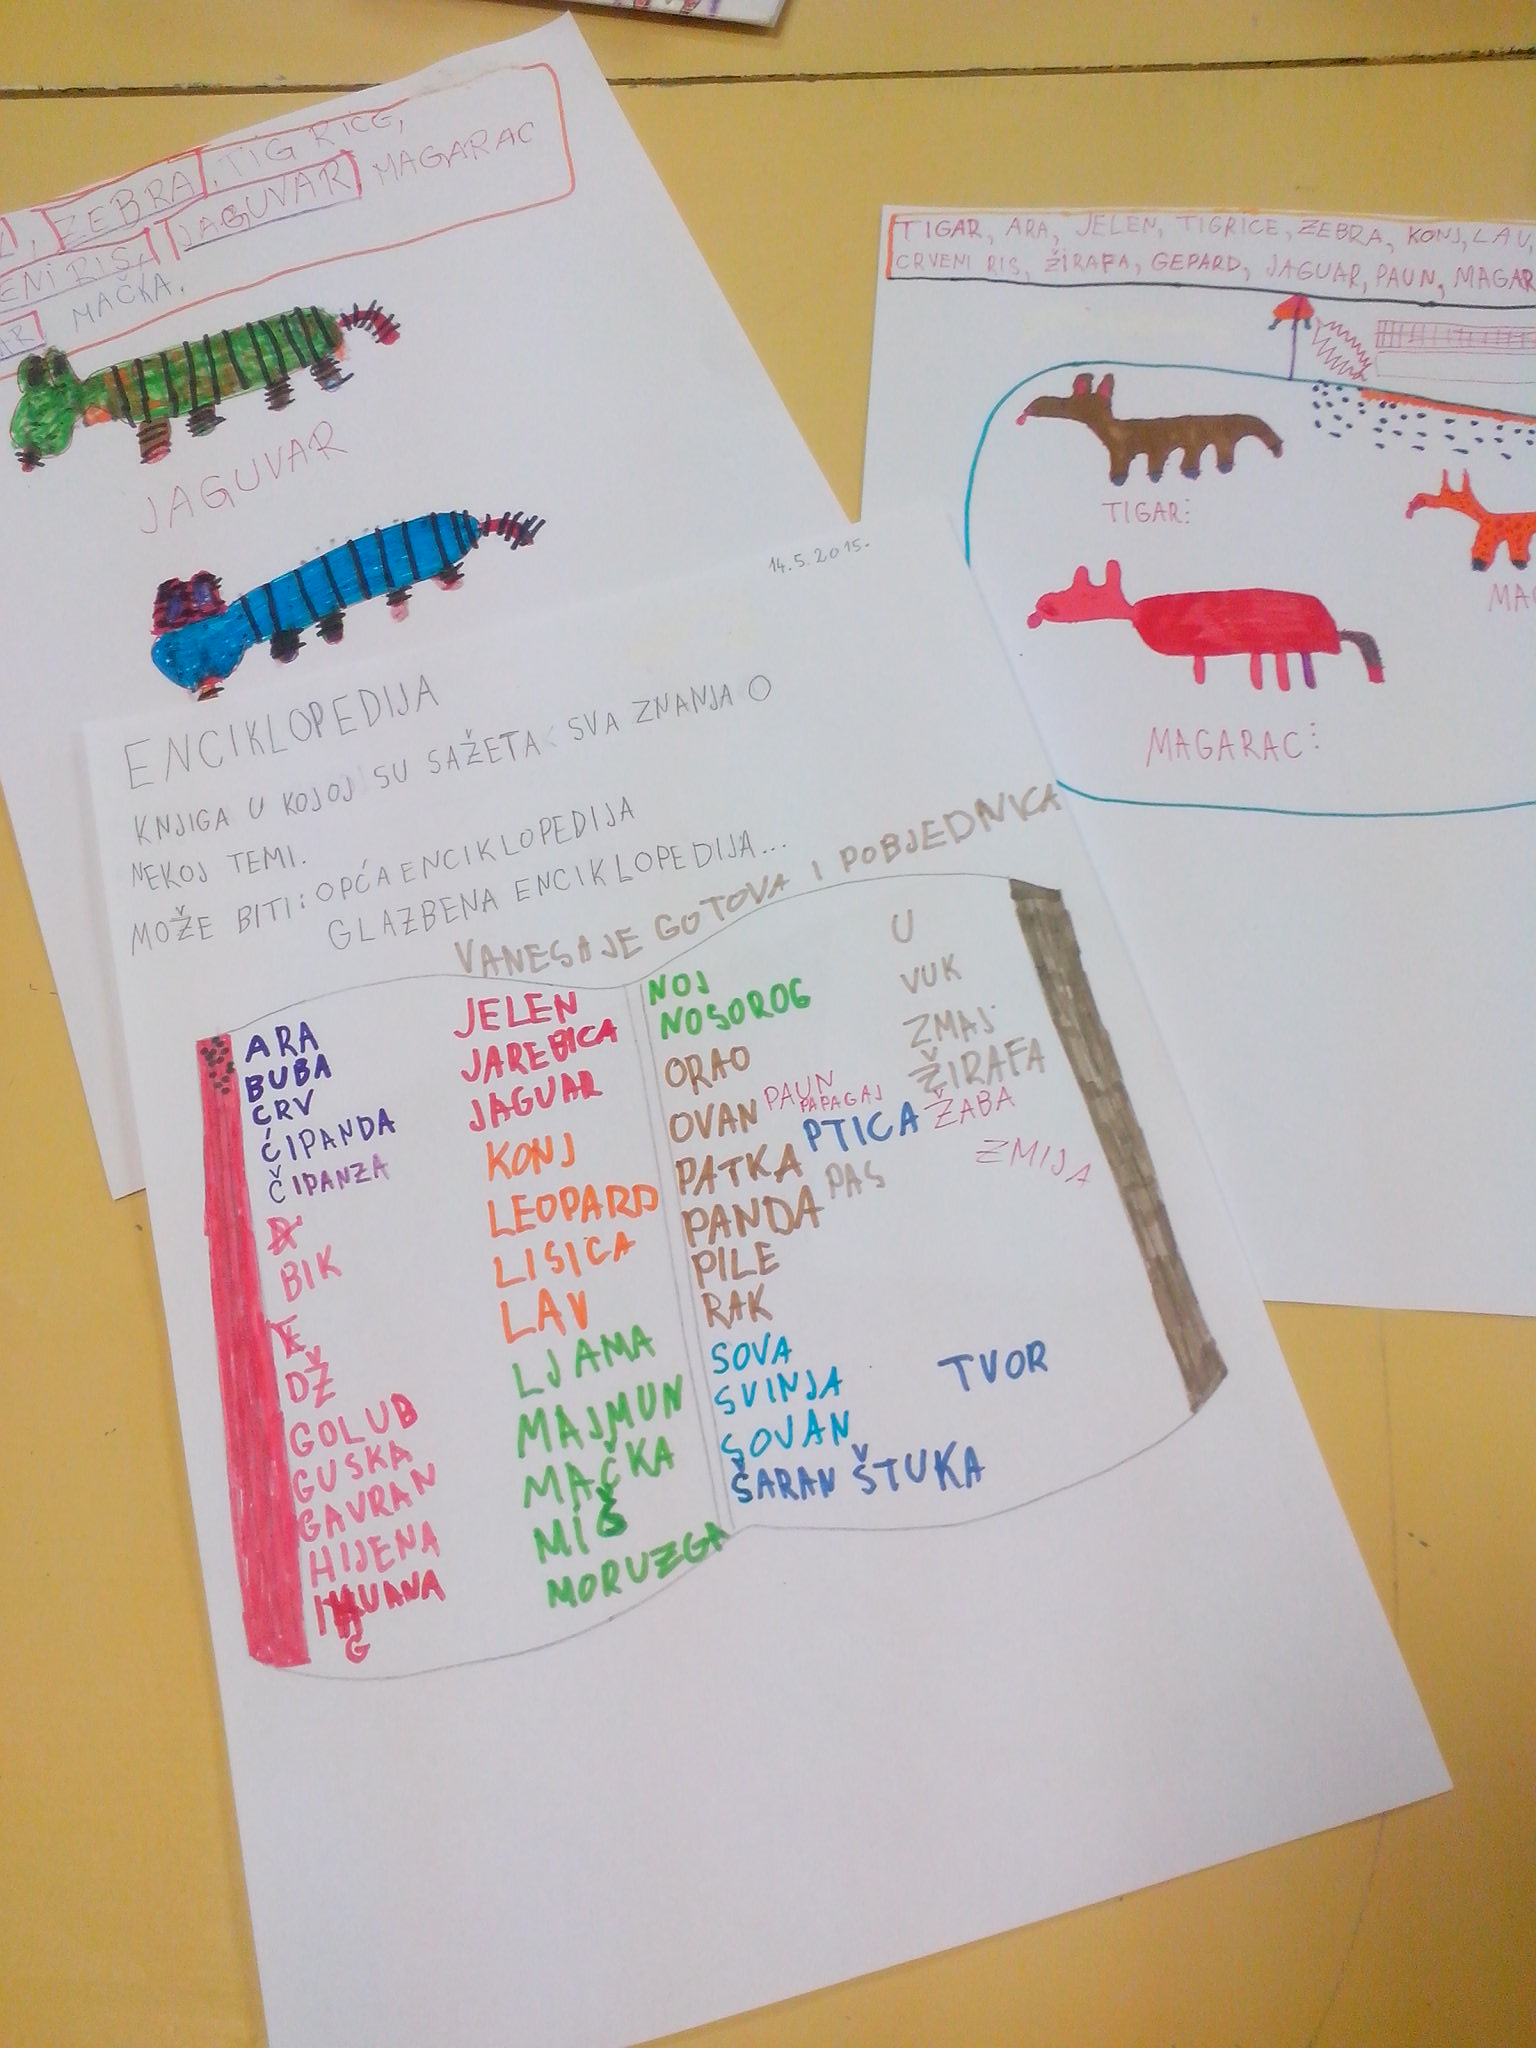 , ZEBRA, TIGRICE,
JAGUVAR MAGARAC
MAČKA.
JAGUVAR
TIGAR, ARA, JELEN, TIGRICE, ZEBRA, KONJ, LAV,
CRVENI RIS, ŽIRAFA, GEPARD, JAGUAR, PAUN, MAGAR
TIGAR:
MAG
MAGARAC:
14.5.2015.
ENCIKLOPEDIJA
KNJIGA U KOJOJ SU SAŽETA SVA ZNANJA O
NEKOJ TEMI.
MOŽE BITI: OPĆA ENCIKLOPEDIJA
GLAZBENA ENCIKLOPEDIJA...
VANESA JE GOTOVA I POBJEDNICA
ARA
BUBA
CRV
ĆIPANDA
ČIPANZA
BIK
DŽ
GOLUB
GUSKA
GAVRAN
HIJENA
G
JELEN
JAREBICA
JAGUAR
KONJ
LEOPARD
LISICA
LAV
LJAMA
MAJMUN
MAČKA
MIŠ
MORUZGA
NOJ
NOSOROG
ORAO
OVAN PAUN
PAPAGAJ
PATKA PTICA
PANDA PAS
PILE
RAK
SOVA
SVINJA
SOVAN
ŠARAN ŠTUKA
TVOR
U
VUK
ZMAJ
ŽIRAFA
ŽABA
ZMIJA